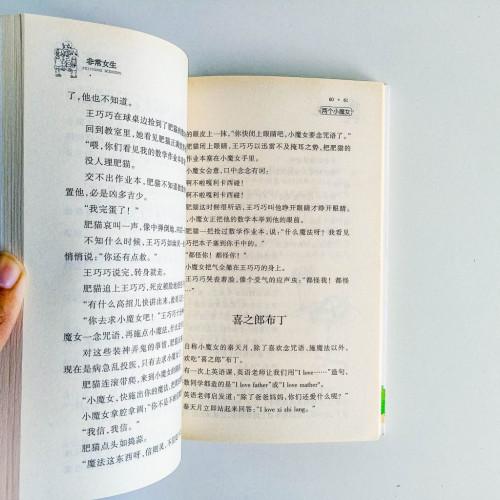 非常女生
了，他也不知道。
王巧巧在球桌边捡到了肥猫的
回到教室里，她看见肥猫正满
“喂，你们看见我的数学作业本
没人理肥猫。
交不出作业本，肥猫不知道
置他，必是凶多吉少。
“我完蛋了！”
肥猫哀叫一声，像中弹倒地
不知什么时候，王巧巧如幽灵一
悄悄说：“你还有点救。”
王巧巧说完，转身就走。
肥猫追上王巧巧，死皮赖脸
“有什么高招儿快讲出来，
“你去求小魔女吧！”王巧巧十
魔女一念咒语，再施点小魔法，什
对这些装神弄鬼的事情，肥猫
现在是病急乱投医，只有去求小
肥猫连滚带爬，来到小魔女的
“小魔女，快施出你的魔法，把
小魔女拿腔拿调：“你不是不
“我信，我信。”
肥猫点头如捣蒜。
“魔法这东西呀，信则灵，不
60 · 61
两个小魔女
的眼皮上一抹，“你快闭上眼睛吧，小魔女要念咒语了。”
肥猫闭上眼睛，王巧巧以迅雷不及掩耳之势，把肥猫的
作业本塞在小魔女手里。
小魔女会意，口中念念有词：
啊不啦嘎利卡西碰！
啊不啦嘎利卡西碰！
肥猫这时候很听话，王巧巧叫他睁开眼睛才睁开眼睛。
小魔女正把他的数学本举到他的眼前。
肥猫一把抢过数学作业本，说：“什么魔法呀？我看见
巧把本子塞到你手中的。”
“都怪你！都怪你！”
小魔女把气全撒在王巧巧的身上。
王巧巧哭丧着脸，像个受气的应声虫：“都怪我！都怪
…”
喜之郎布丁
自称小魔女的秦天月，除了喜欢念咒语、施魔法以外，
欢吃“喜之郎”布丁。
有一次上英语课，英语老师让我们用“I love……”造句，
数同学都造的是“I love father”或“I love mather”。
英语老师启发道：“除了爸爸妈妈，你们还爱什么呢？”
秦天月立即站起来回答：“I love xi zhi lang.”